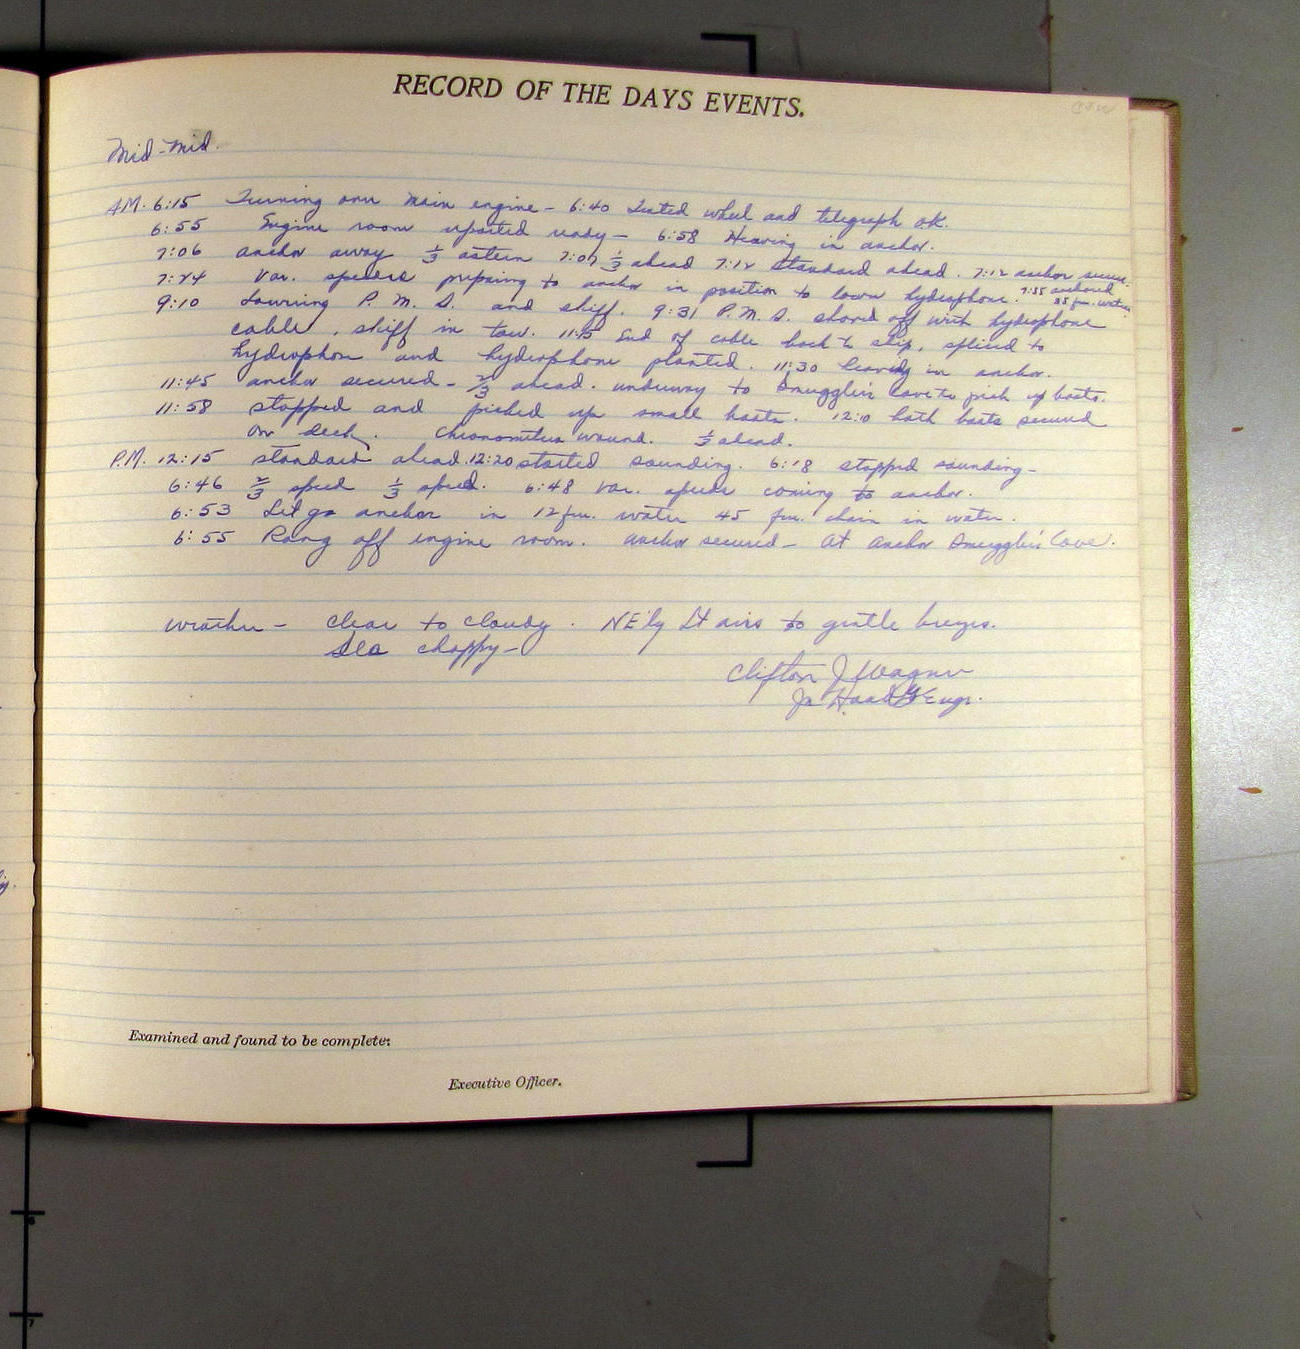 RECORD OF THE DAYS EVENTS.
Mid-Mid.
AM. 6:15 Turning over main engine - 6:40 Tested wheel and telegraph ok.
6:55 Engine room reported ready - 6:58 Heaving in anchor.
7:06 anchor away 1/3 astern 7:07 1/3 ahead 7:12 standard ahead. 7:12 anchor secure.
7:24 Var. speeds preparing to anchor in position to lower hydrophone. 7:55 anchored
35 fm. water
9:10 Lowering P. M. S. and skiff. 9:31 P. M. S. shoved off with hydrophone
cable, skiff in tow. 11:15 End of cable back to ship, spliced to
hydrophone and hydrophone planted. 11:30 heaving in anchor.
11:45 anchor secured - 2/3 ahead. underway to Smuggler's Cove to pick up boats.
11:58 stopped and picked up small boats. 12:0 both boats secured
on deck. Chronometers wound. 1/3 ahead.
P.M. 12:15 standard ahead. 12:20 started sounding. 6:18 stopped sounding -
6:46 2/3 speed 1/3 speed. 6:48 Var. speeds coming to anchor.
6:53 Let go anchor in 12 fm. water 45 fm. chain in water.
6:55 Rang off engine room. anchor secured - At anchor Smuggler's Cove.
weather - clear to cloudy. NE'ly Lt airs to gentle breezes.
Sea choppy -
Clifton J. Wagner
Jr. H. and G. Engr.
Examined and found to be complete:
Executive Officer.
6
7